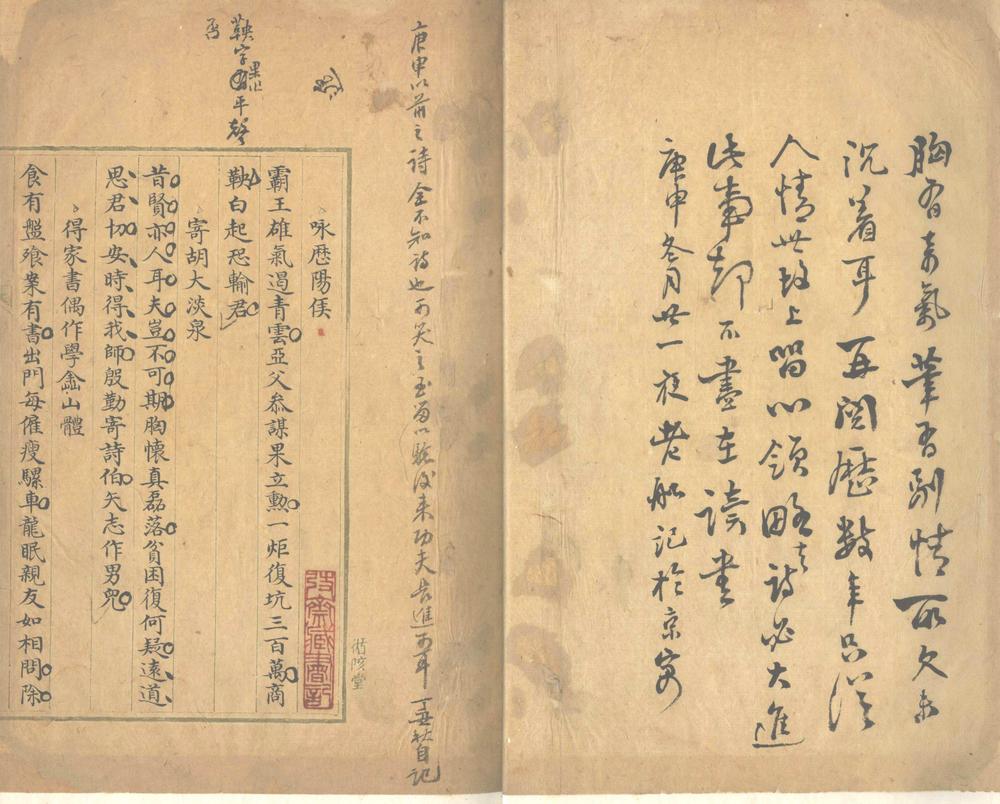 胸有奇氣筆有剔情所欠未
沉着耳再閱歷數年只從
人情世故上留心領略之詩必大進
此事却不盡在讀書
庚申冬月廿一夜老船記於京寓
庚申以前之詩全不知詩也可笑之至留以驗後來功夫長進可耳 丁丑秋自記
鞅字果作平聲
否
咏歷陽侯
弢齋藏書記
霸王雄氣遏青雲亞父叅謀果立勲一炬復坑三百萬商
鞅白起恐輸君
寄胡大淡泉
昔賢亦人耳夫豈不可期胸懷真磊落貧困復何疑遠道
思君切安時得我師殷勤寄詩伯矢志作男兒
得家書偶作學崟山體
食有盤飧案有書出門每僱瘦騾車龍眠親友如相問除